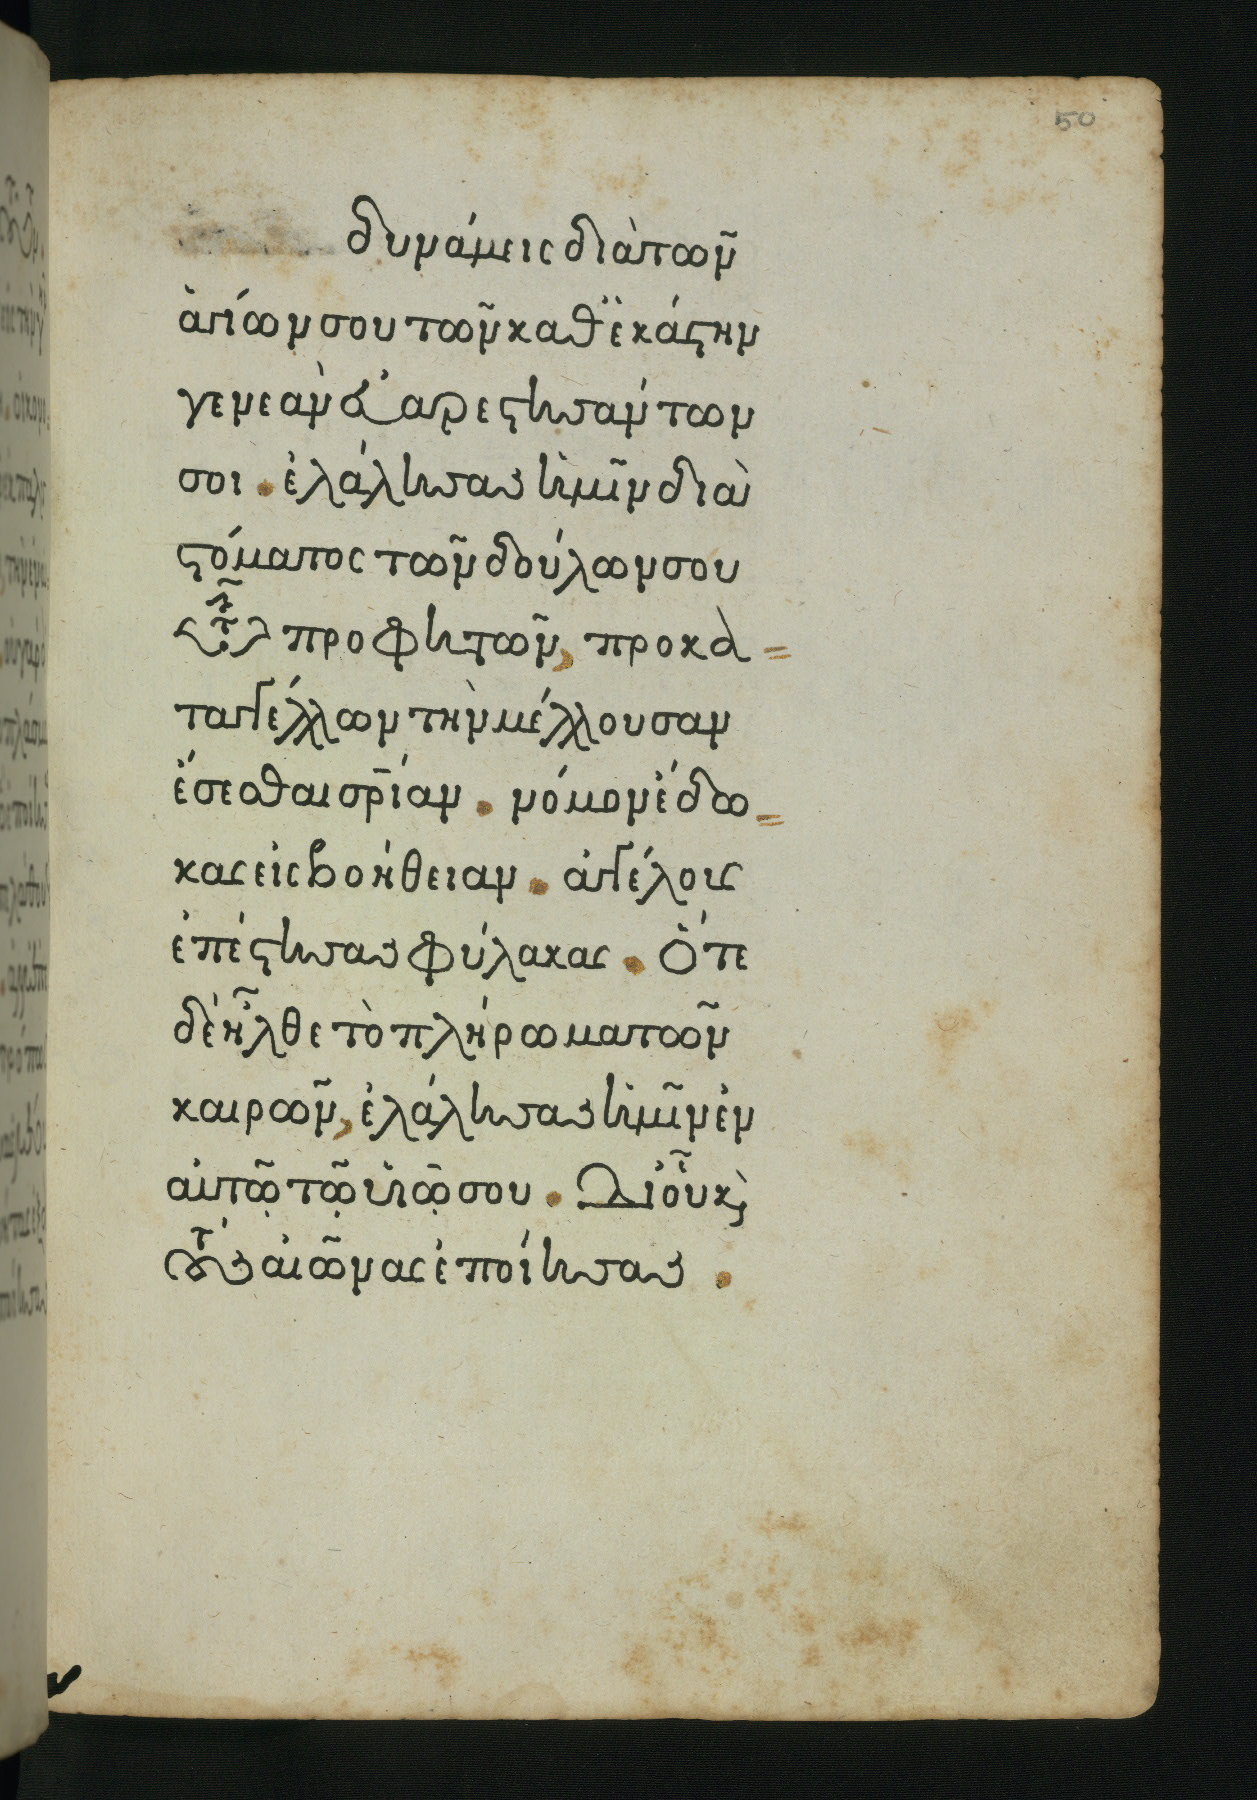 50
δυνάμεις διὰ τῶν
ἁγίων σου τῶν καθ' ἑκάστην
γενεὰν εὐαρεστησάντων
σοι . ἐλάλησας ἡμῖν διὰ
στόματος τῶν δούλων σου
τῶν προφητῶν, προκα=
ταγγέλλων τὴν μέλλουσαν
ἔσεσθαι σρίαν . νόμον ἔδω=
κας εἰς βοήθειαν . ἀγγέλους
ἐπέστησας φύλακας . Ὅτε
δὲ ἦλθε τὸ πλήρωμα τῶν
καιρῶν, ἐλάλησας ἡμῖν ἐν
αὐτῷ τῷ υἱῷ σου . Δι' οὗ κ̀
τοὺς αἰῶνας ἐποίησας .